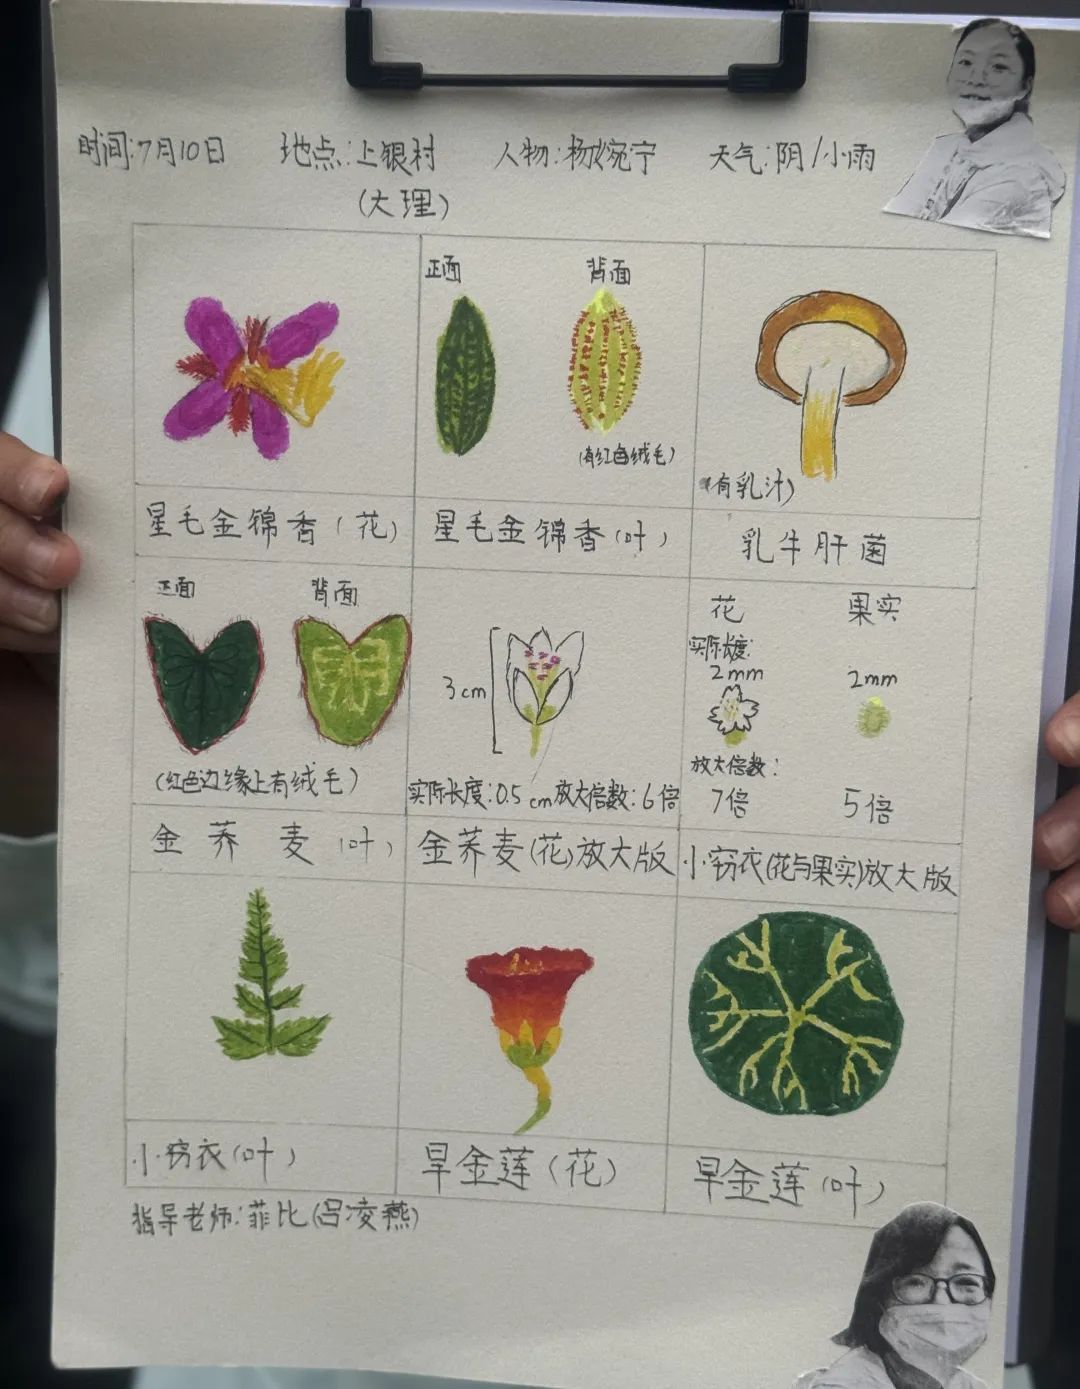 时间:7月10日 地点:上银村 人物:杨婉宁 天气:阴/小雨
(大理)
正面 背面
(有红色绒毛)
(有乳汁)
星毛金锦香(花) 星毛金锦香(叶) 乳牛肝菌
正面 背面
(红色边缘上有绒毛)
金荞麦(叶)
3cm
实际长度:0.5cm放大倍数:6倍
金荞麦(花)放大版
花 果实
实际长度:
2mm 2mm
放大倍数:
7倍 5倍
小窃衣(花与果实)放大版
小窃衣(叶) 旱金莲(花) 旱金莲(叶)
指导老师:菲比(吕凌燕)